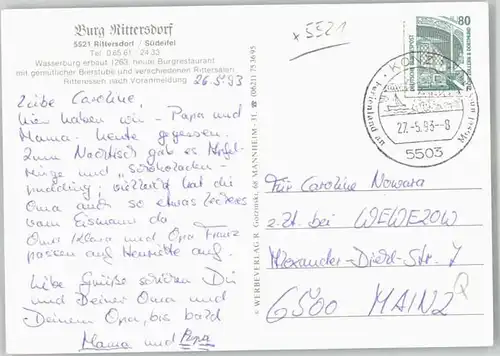 Burg Rittersdorf
5521 Rittersdorf / Südeifel
Tel. 0 65 61 - 24 33
Wasserburg erbaut 1263, heute Burgrestaurant
mit gemütlicher Bierstube und verschiedenen Rittersälen
Ritteressen nach Voranmeldung
26.5.93
Liebe Caroline,
hier haben wir - Papa und
Mama - heute gegessen.
Zum Nachtisch gab es Apfel-
ringe und Schokoladen-
pudding; vielleicht hat die
Oma auch so etwas leckeres
vom Eismann da
Omi Klara und Opa Franz
passen auf Henriette auf.
Liebe Grüße schicken Dir
und Deiner Oma und
Deinem Opa, bis bald
Mama und Papa
© WERBEVERLAG 68 MANNHEIM 31, ☎ (0621) 75 36 95
x 5521
80
DEUTSCHE BUNDESPOST
KONZ
Ferienland an Saar und Mosel
27.-5.93-8
5503
Für Caroline Nowara
z.Zt. bei WEWEZOW
Alexander-Diehl-Str. 7
6500 MAINZ